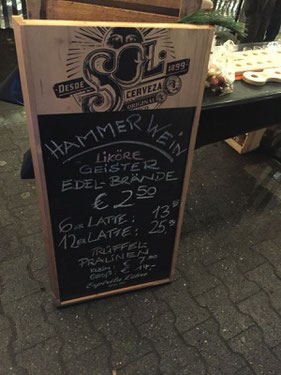 DESDE 1899
SOL
CERVEZA
ORIGINAL
HAMMER WEIN
LIKÖRE
GEISTER
EDEL-BRÄNDE
€ 2.50
6er LATTE: 13
12er LATTE: 25.
TRÜFFEL-
PRALINEN
klein: € 7.
groß: € 14,-